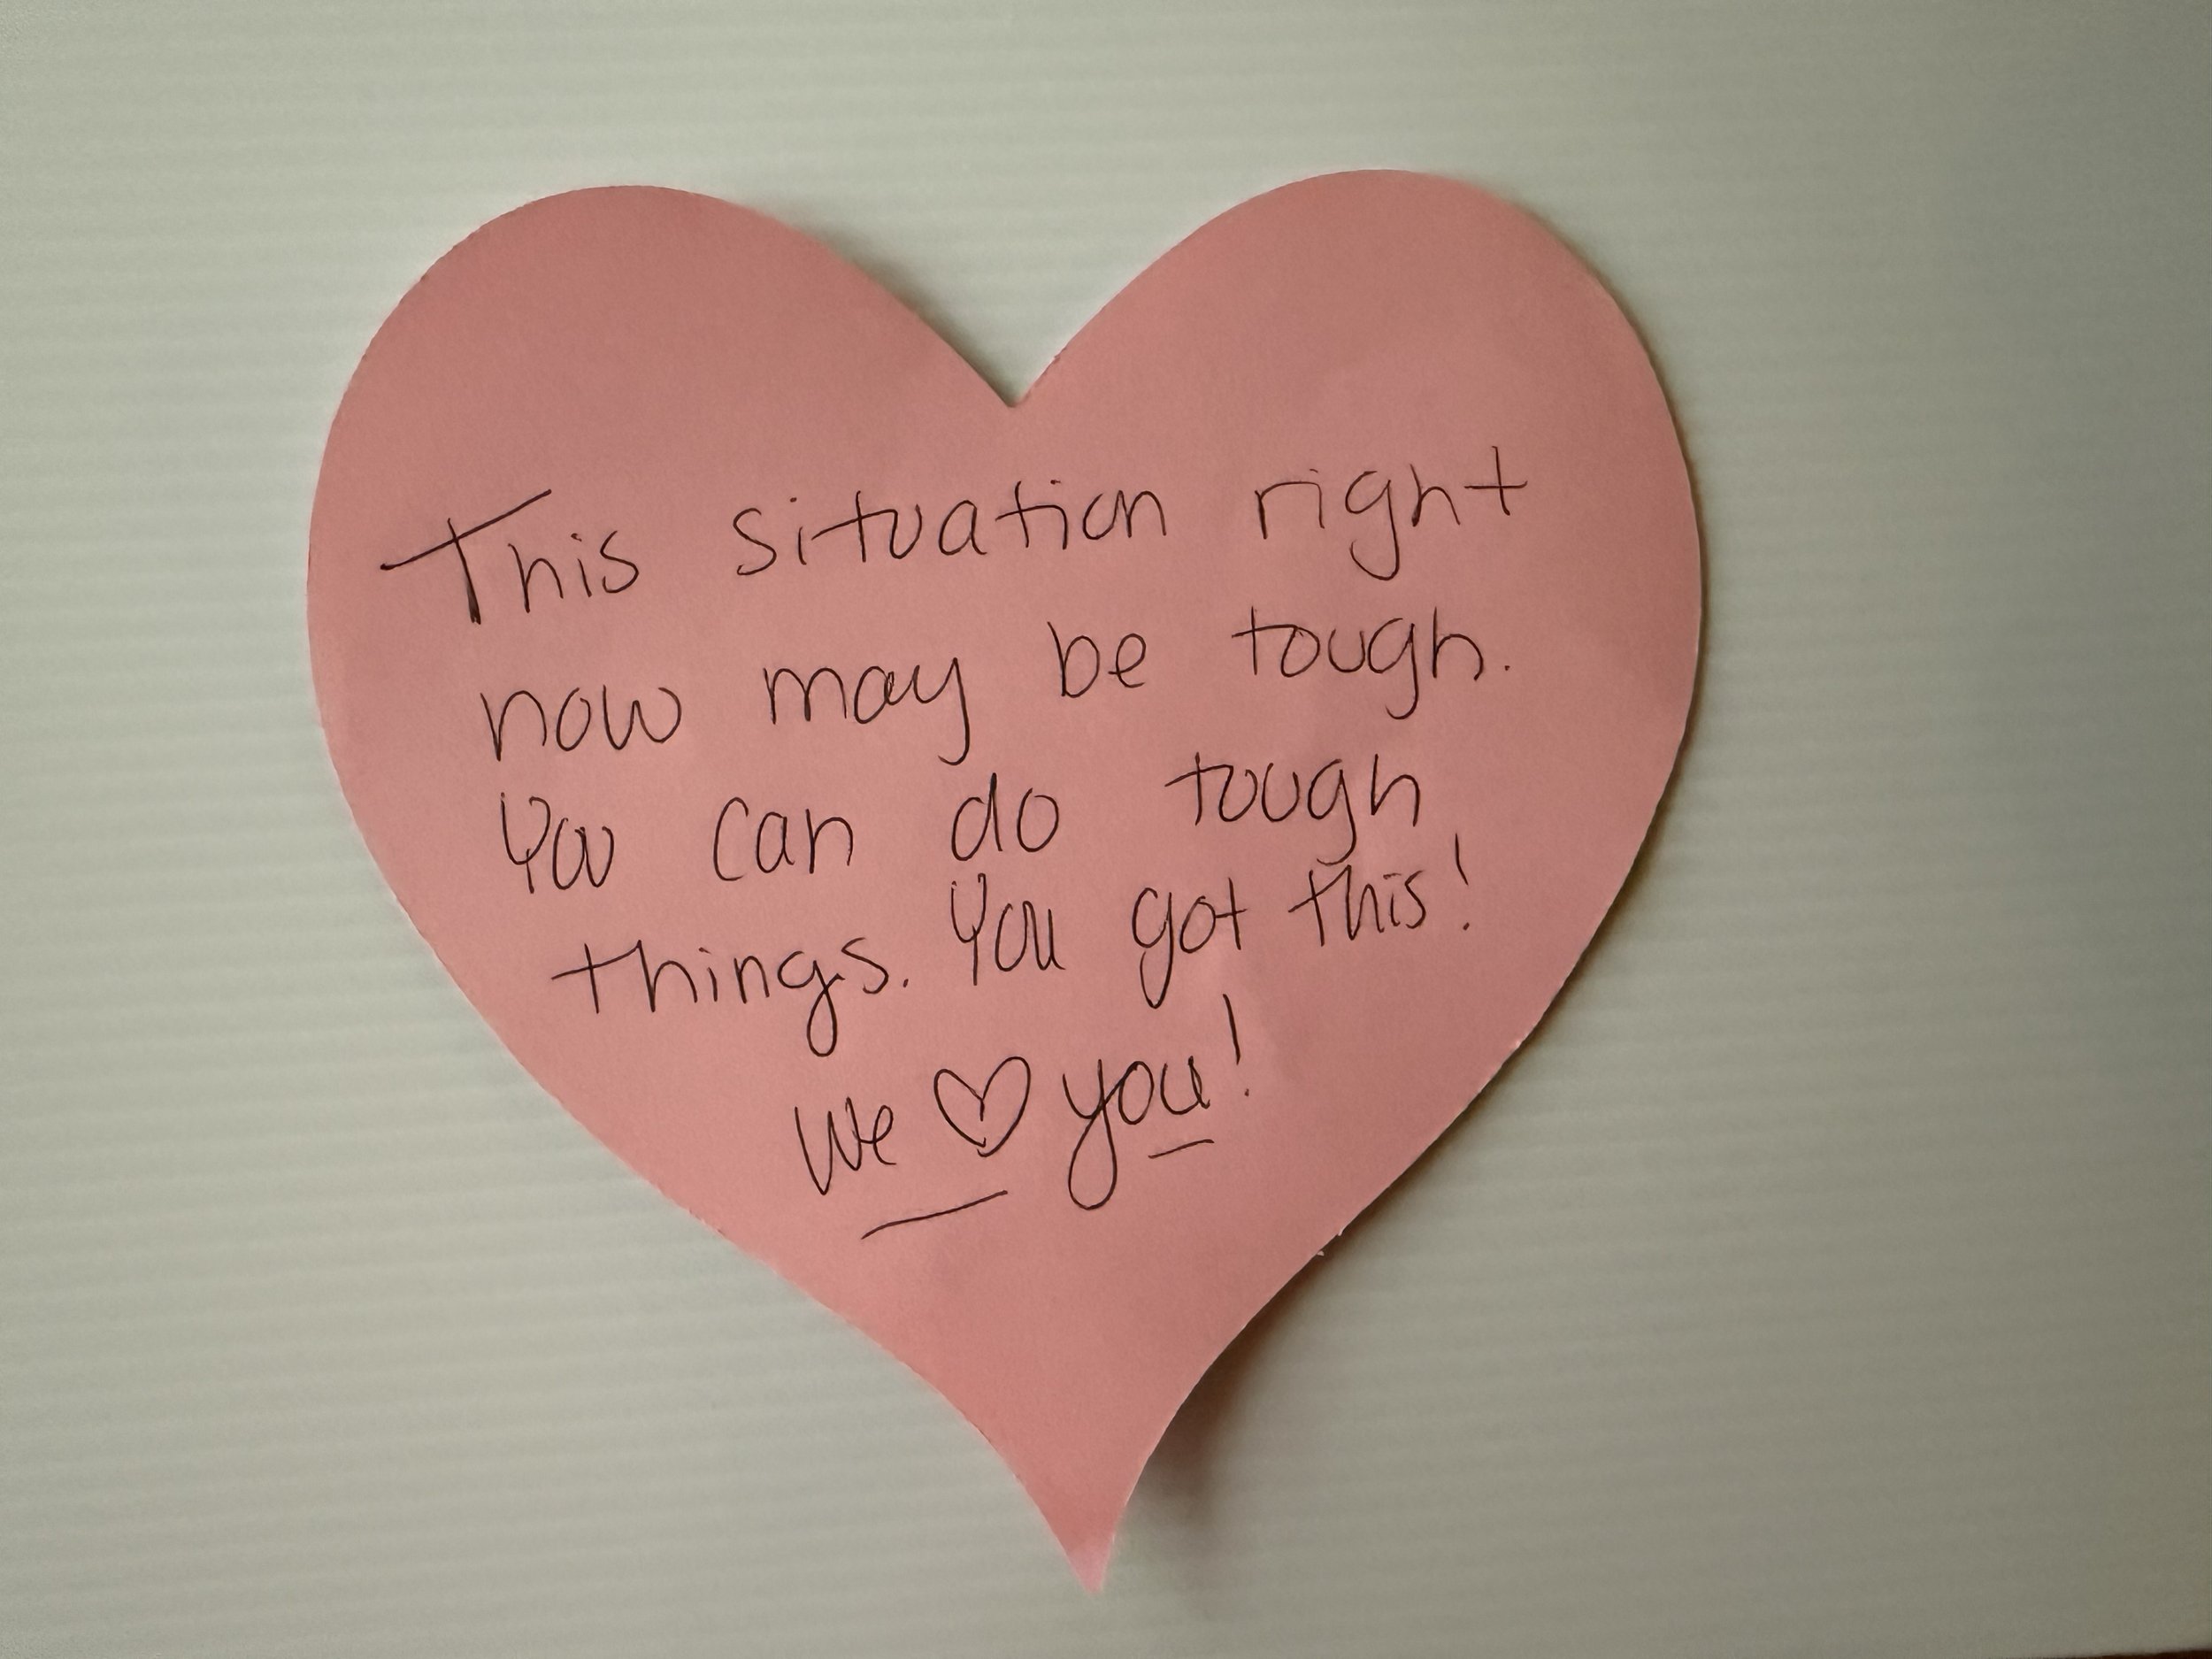 This situation right
now may be tough.
You can do tough
things. You got this!
We ♡ you!